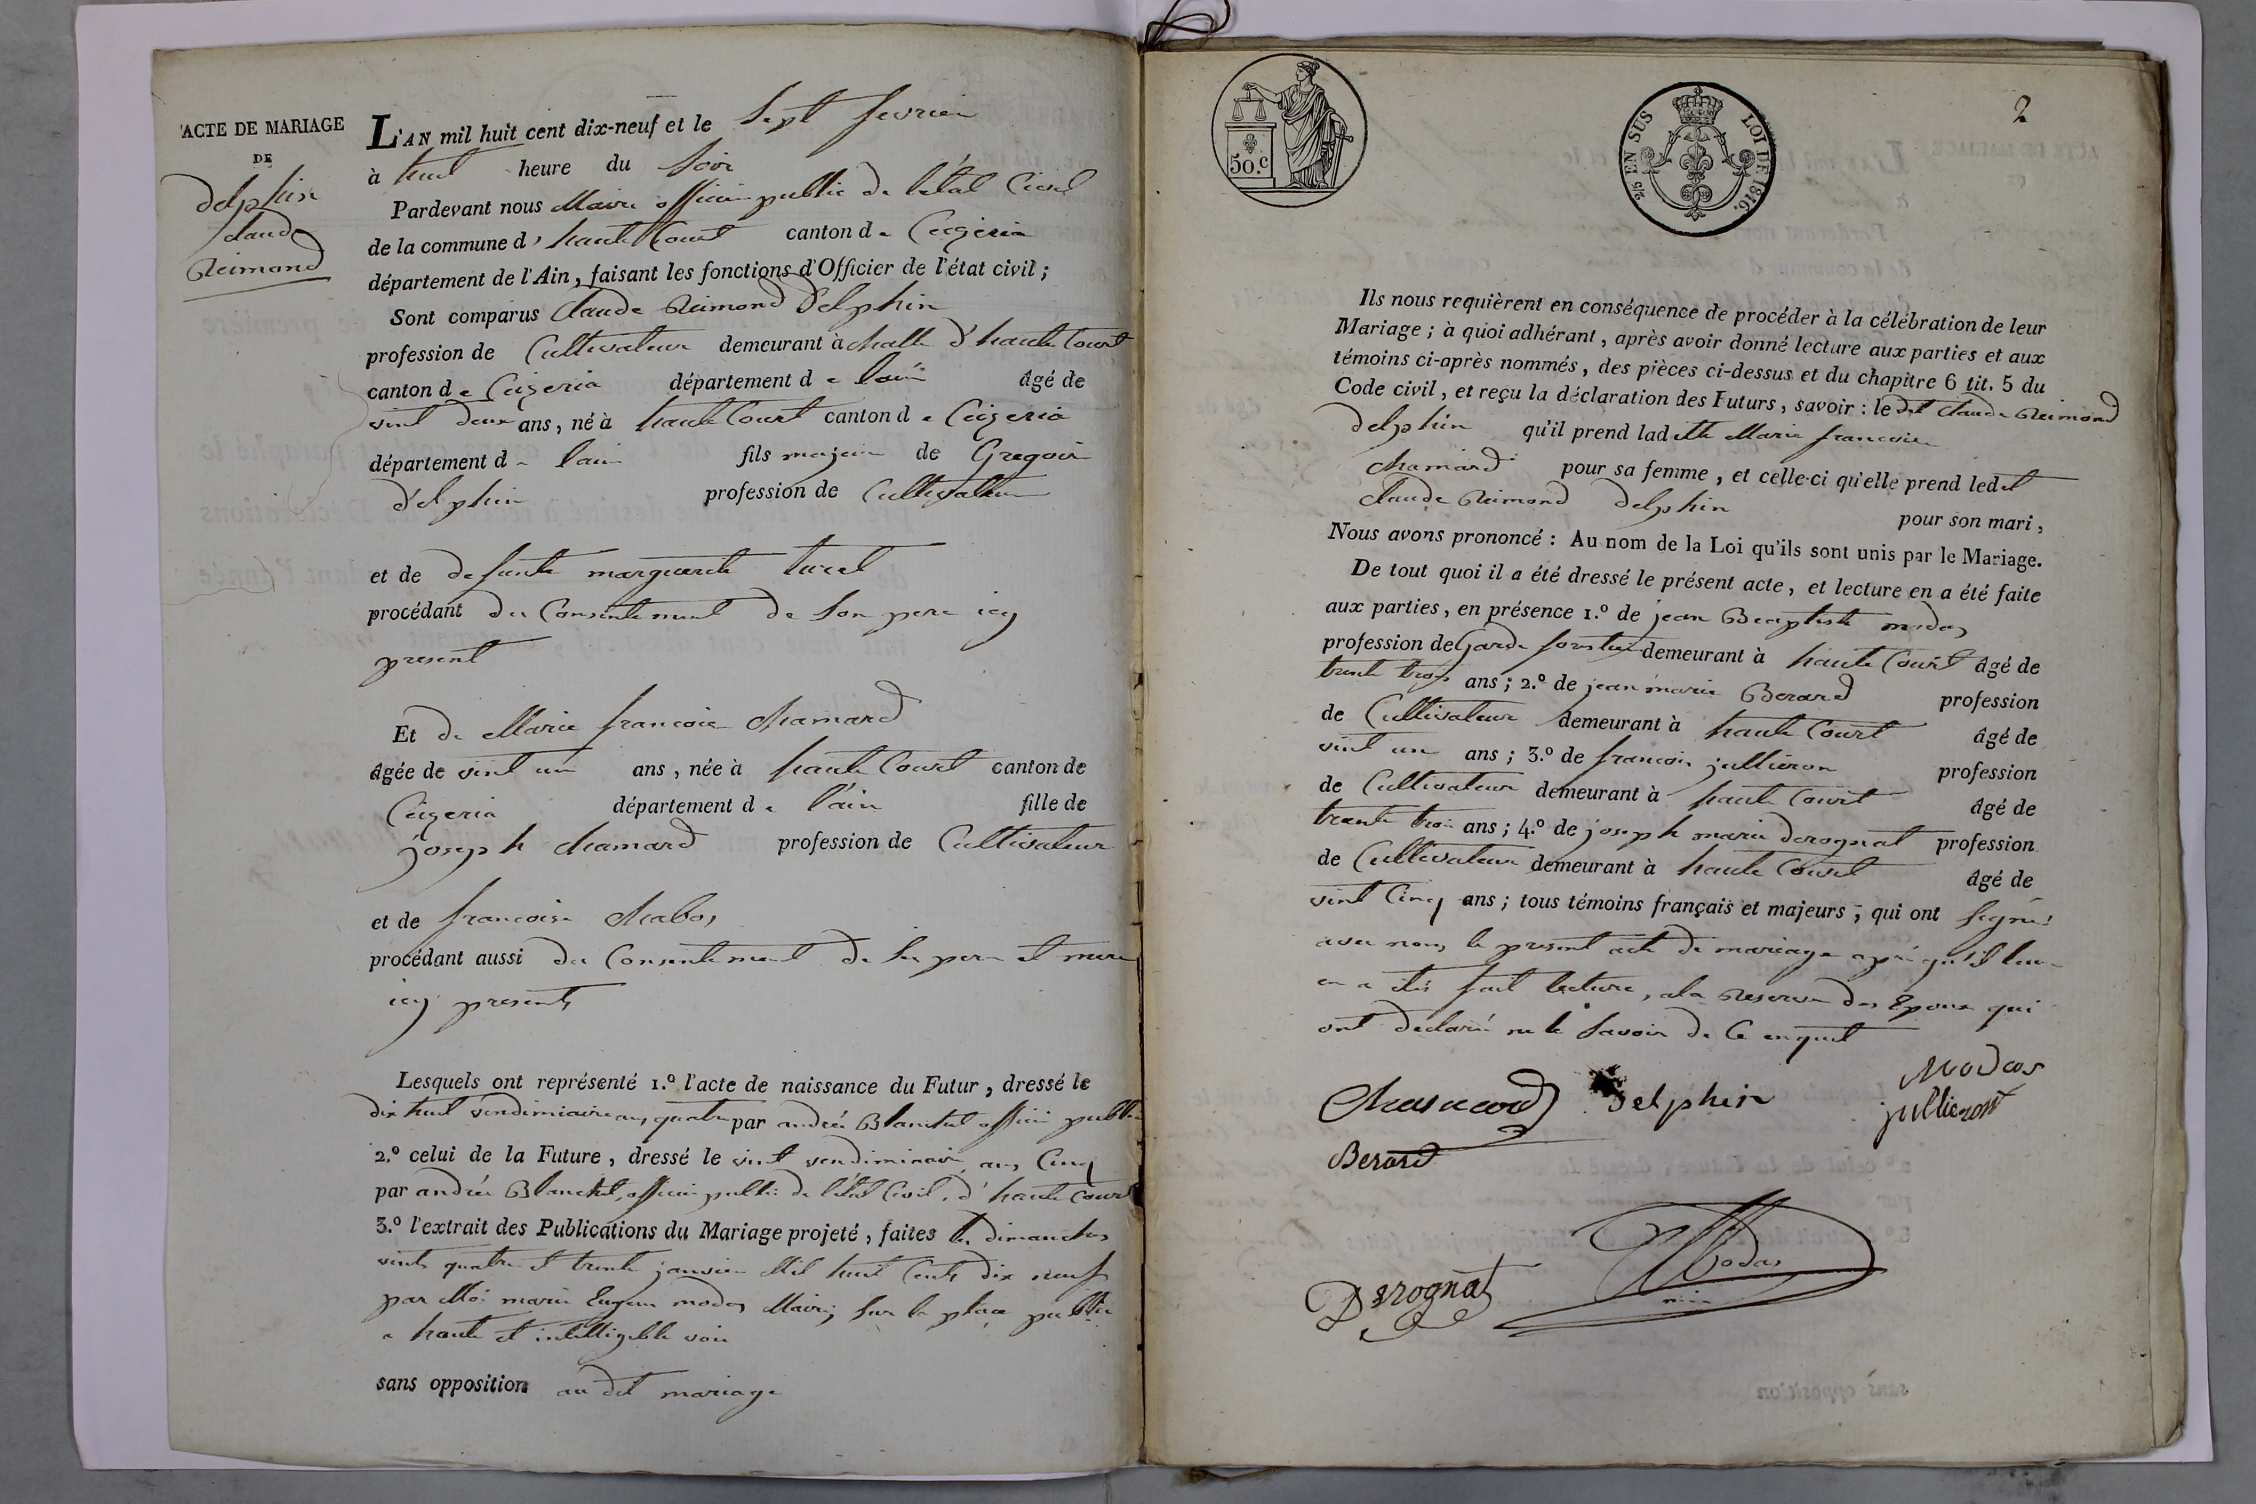 ACTE DE MARIAGE
DE
delphin
claude
Reimond
L'AN mil huit cent dix-neuf et le sept fevrier
à huit heure du soir
Pardevant nous Maire officier public de létat Civil
de la commune d' hautecourt canton de Ceyzeria
département de l'Ain, faisant les fonctions d'Officier de l'état civil ;
Sont comparus Claude Reimond Delphin
profession de Cultivateur demeurant à challe d' hautecourt
canton de Ceyzeria département de lain âgé de
vint deux ans, né à hautecourt canton de Ceyzeria
département de lain fils majeur de Gregoir
d'elphin profession de Cultivateur
et de defunte marguerite turel
procédant du Consentement de son pere icy
present
Et de Marie francoise chamard
âgée de vint un ans, née à hautecourt canton de
Ceyzeria département de l'ain fille de
joseph chamard profession de Cultivateur
et de francoise chabos
procédant aussi du Consentement de ses pere et mere
icy presents
Lesquels ont représenté 1.º l'acte de naissance du Futur, dressé le
dix huit vendimiaire an quatre par andréa Blanchet officier public
2.º celui de la Future, dressé le vint vendimiaire an Cinq
par andréa Blanchet, officier public de létat Civil, d' hautecourt
3.º l'extrait des Publications du Mariage projeté, faites les dimanches
vints quatre et trente janvier Mil huit Cents dix neuf
par Moi marie Eugene modas Maire, sur la place public
a haute et intelligible voix
sans opposition au dit mariage
50.C
2/5 EN SUS LOI DE 1816.
2
Ils nous requièrent en conséquence de procéder à la célébration de leur
Mariage ; à quoi adhérant, après avoir donné lecture aux parties et aux
témoins ci-après nommés, des pièces ci-dessus et du chapitre 6 tit. 5 du
Code civil, et reçu la déclaration des Futurs, savoir : le dit Claude Reimond
delphin qu'il prend ladette Marie francoise
chamard pour sa femme, et celle-ci qu'elle prend ledit
claude Reimond delphin pour son mari,
Nous avons prononcé : Au nom de la Loi qu'ils sont unis par le Mariage.
De tout quoi il a été dressé le présent acte, et lecture en a été faite
aux parties, en présence 1.º de jean Beaptiste modas
profession de Garde forestier demeurant à hautecourt âgé de
trente trois ans ; 2.º de jean marie Berard profession
de Cultivateur demeurant à hautecourt âgé de
vint un ans ; 3.º de francois jullieron profession
de Cultivateur demeurant à hautecourt âgé de
trante trois ans ; 4.º de joseph marie derognat profession
de Cultivateur demeurant à hautecourt âgé de
vint Cinq ans ; tous témoins français et majeurs, qui ont signés
avec nous le present acte de mariage apré qu'il leur
en a étés fait lecture, ala Reserve des Epoux qui
ont declaré ne le savoir de Ce enquit
Chasmard Delphin Modas
jullieront
Berard
Derognat Modas